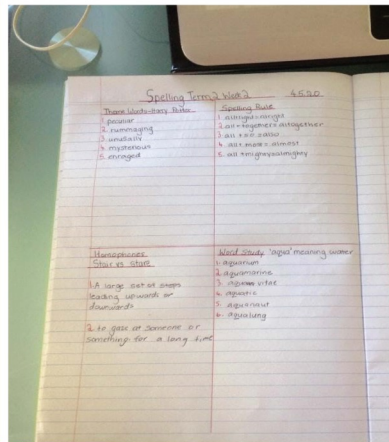 Spelling Term 2 Week 2 4.5.20
Theme Words-Harry Potter
1. peculiar
2. rummaging
3. unusually
4. mysterious
5. enraged
Spelling Rule
1. all+right=alright
2. all + together= altogether
3. all +
4. all + most= almost
5. all +mighty=almighty
Homophones
Stair vs Stare
1. A large set of steps
leading upwards or
downwards
2. to gaze at someone or
something for a long time
Word Study 'aqua' meaning water
1. aquarium
2. aquamarine
3. vitae
4. aquatic
5. aquanaut
6. aqualung